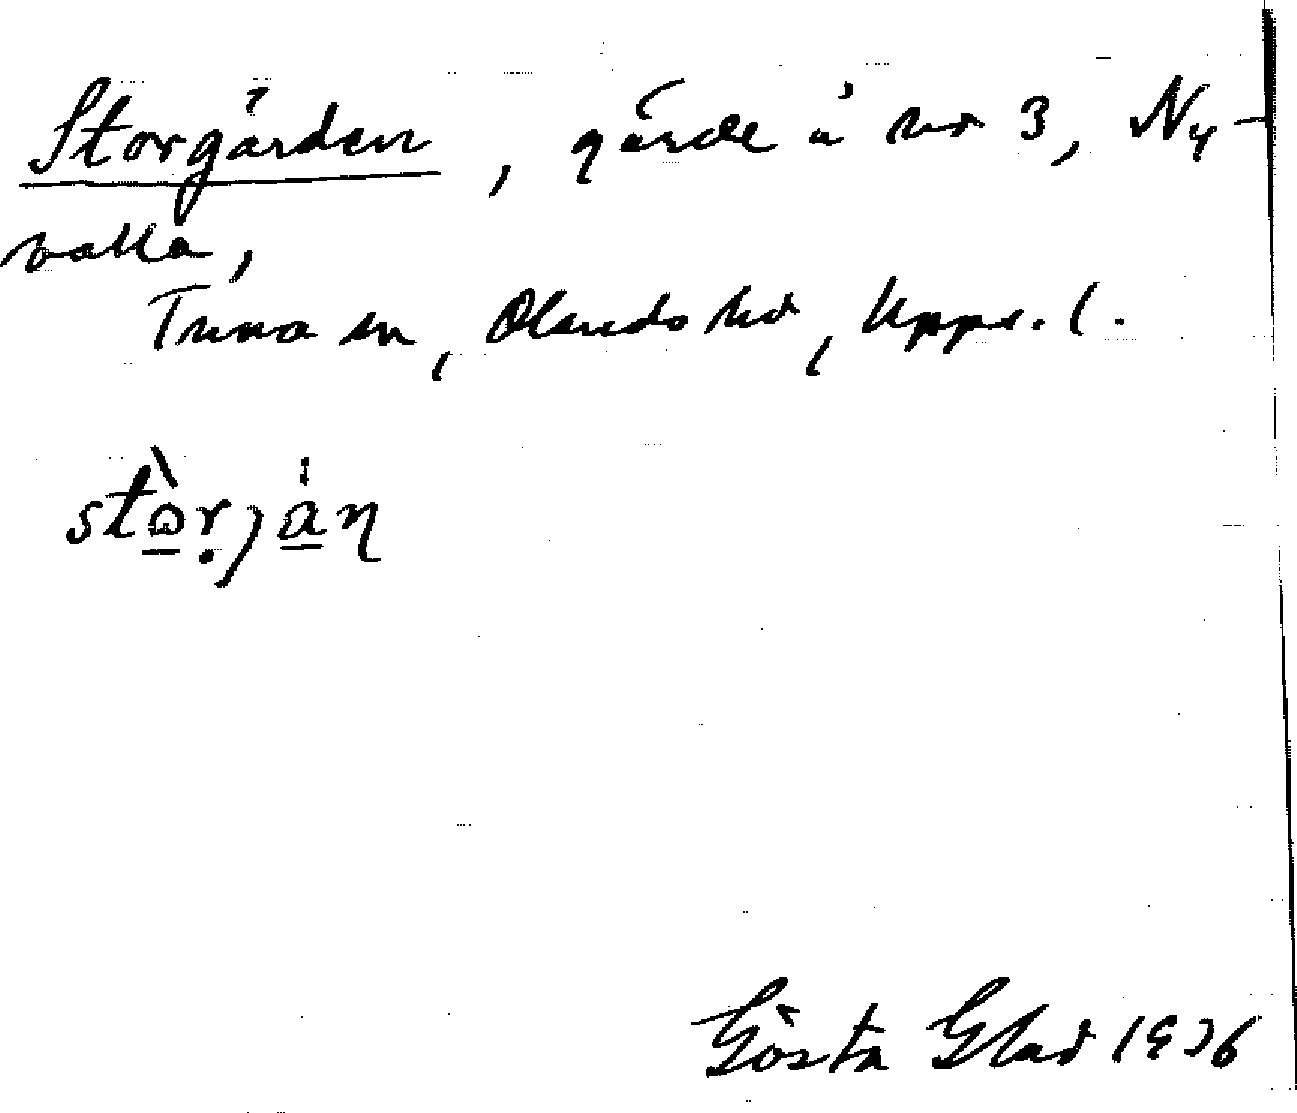 Storgärden, gärde å nr 3, Ny-
valla,
Tuna sn, Olands hd, Upps. l.
stòrjàɳ
Gösta Glad 1936